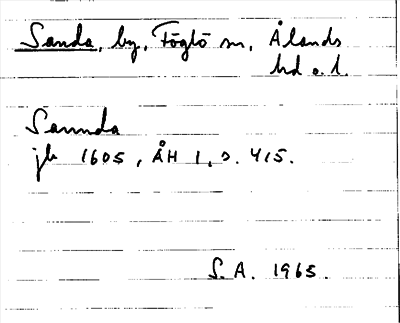 Sanda, by, Föglö sn, Ålands
hd o. l.
Sannda
jb 1605, ÅH 1, s. 415.
S. A. 1965.